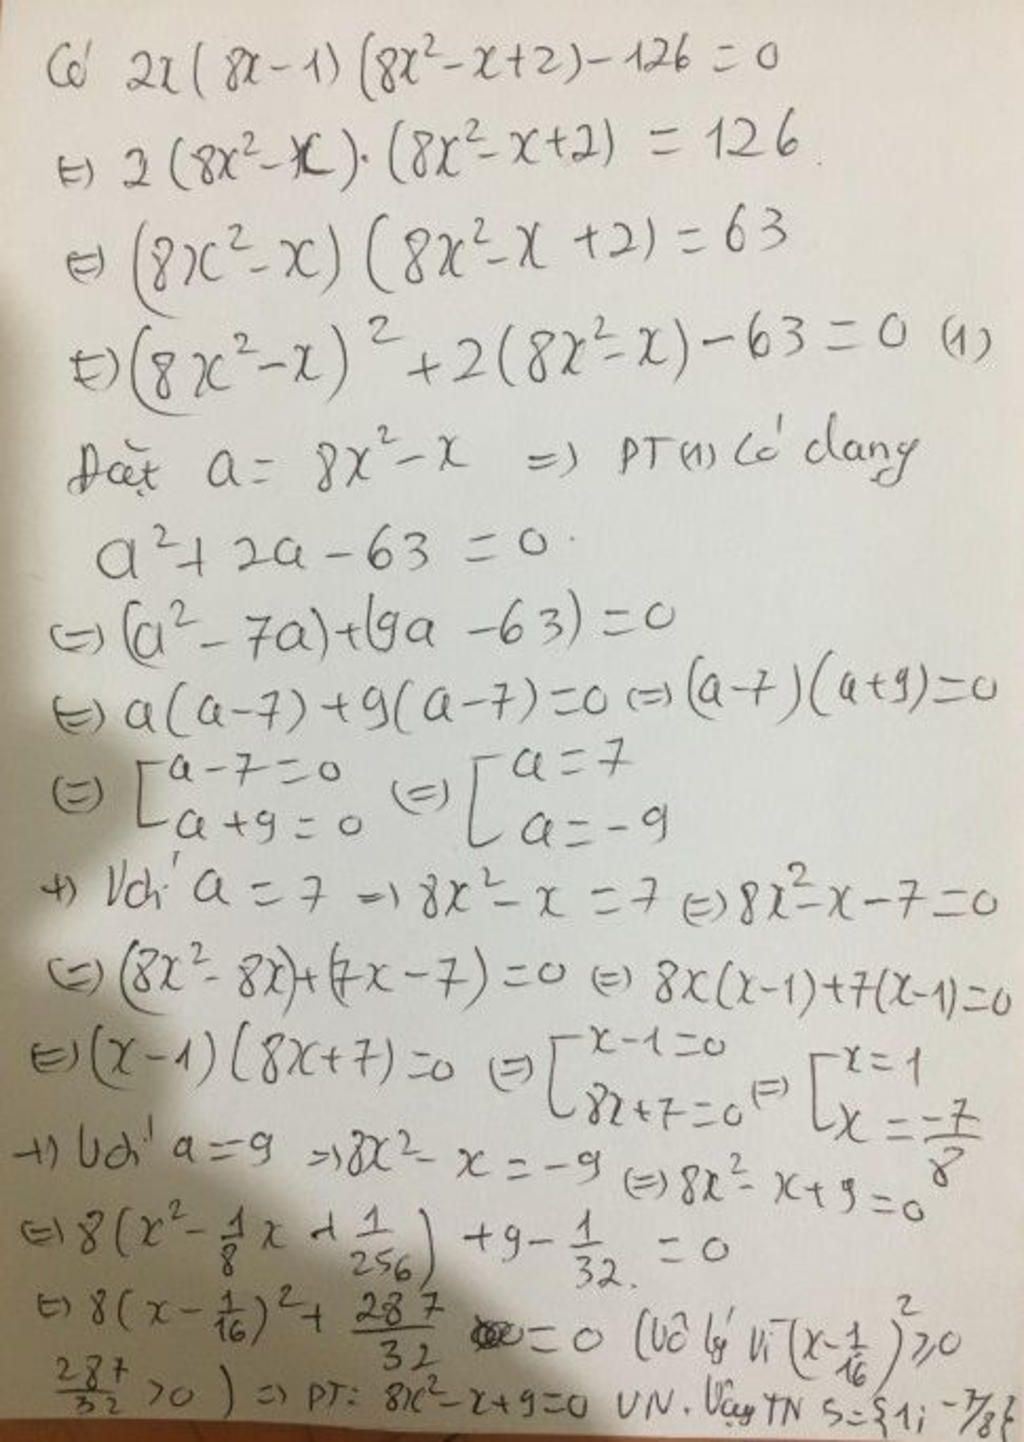 Có 2x(8x-1)(8x²-x+2)-126=0
⇔ 2(8x²-x).(8x²-x+2) = 126.
⇔ (8x²-x)(8x²-x+2)=63
⇔ (8x²-x)²+2(8x²-x)-63=0 (1)
Đặt a= 8x²-x => PT(1) Có dang
a²+2a-63=0.
⇔ (a²-7a)+(9a-63)=0
⇔ a(a-7)+9(a-7)=0 ⇔ (a-7)(a+9)=0
⇔ [a-7=0 a+9=0 ⇔ [a=7 a=-9
+) Với a=7 => 8x²-x=7 ⇔ 8x²-x-7=0
⇔ (8x²-8x)+(7x-7)=0 ⇔ 8x(x-1)+7(x-1)=0
⇔ (x-1)(8x+7)=0 ⇔ [x-1=0 8x+7=0 ⇔ [x=1 x=-7/8
+) Với a=9 => 8x²-x=-9 ⇔ 8x²-x+9=0
⇔ 8(x²-1/8x+1/256)+9-1/32.=0
⇔ 8(x-1/16)²+287/32=0 (Vô lý vì (x-1/16)²≥0
287/32>0) => PT: 8x²-x+9=0 VN. Vậy TN S={1;-7/8}